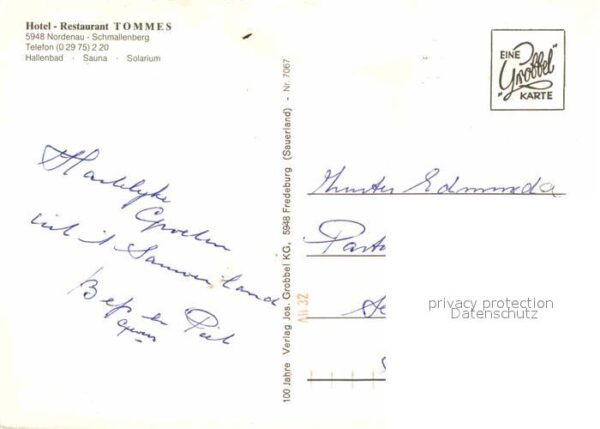 Hotel - Restaurant TOMMES
5948 Nordenau - Schmallenberg
Telefon (0 29 75) 2 20
Hallenbad · Sauna · Solarium
EINE
"Grobbel"
KARTE
100 Jahre Verlag Jos. Grobbel KG, 5948 Fredeburg (Sauerland) - Nr. 7067
Hartelijke
Groeten
uit 't Sauwerland
Bep en Piet
Edmunda
privacy protection
Datenschutz